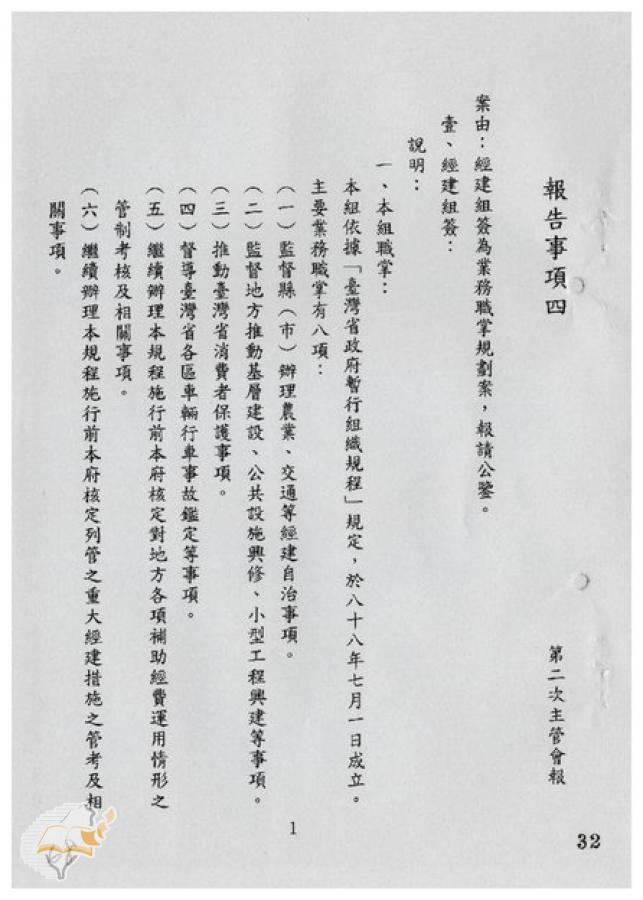 報告事項四
第二次主管會報
案由：經建組簽為業務職掌規劃案，報請公鑒。
壹、經建組簽：
說明：
一、本組職掌：
本組依據「臺灣省政府暫行組織規程」規定，於八十八年七月一日成立。
主要業務職掌有八項：
（一）監督縣（市）辦理農業、交通等經建自治事項。
（二）監督地方推動基層建設、公共設施興修、小型工程興建等事項。
（三）推動臺灣省消費者保護事項。
（四）督導臺灣省各區車輛行車事故鑑定等事項。
（五）繼續辦理本規程施行前本府核定對地方各項補助經費運用情形之
管制考核及相關事項。
（六）繼續辦理本規程施行前本府核定列管之重大經建措施之管考及相
關事項。
1
32